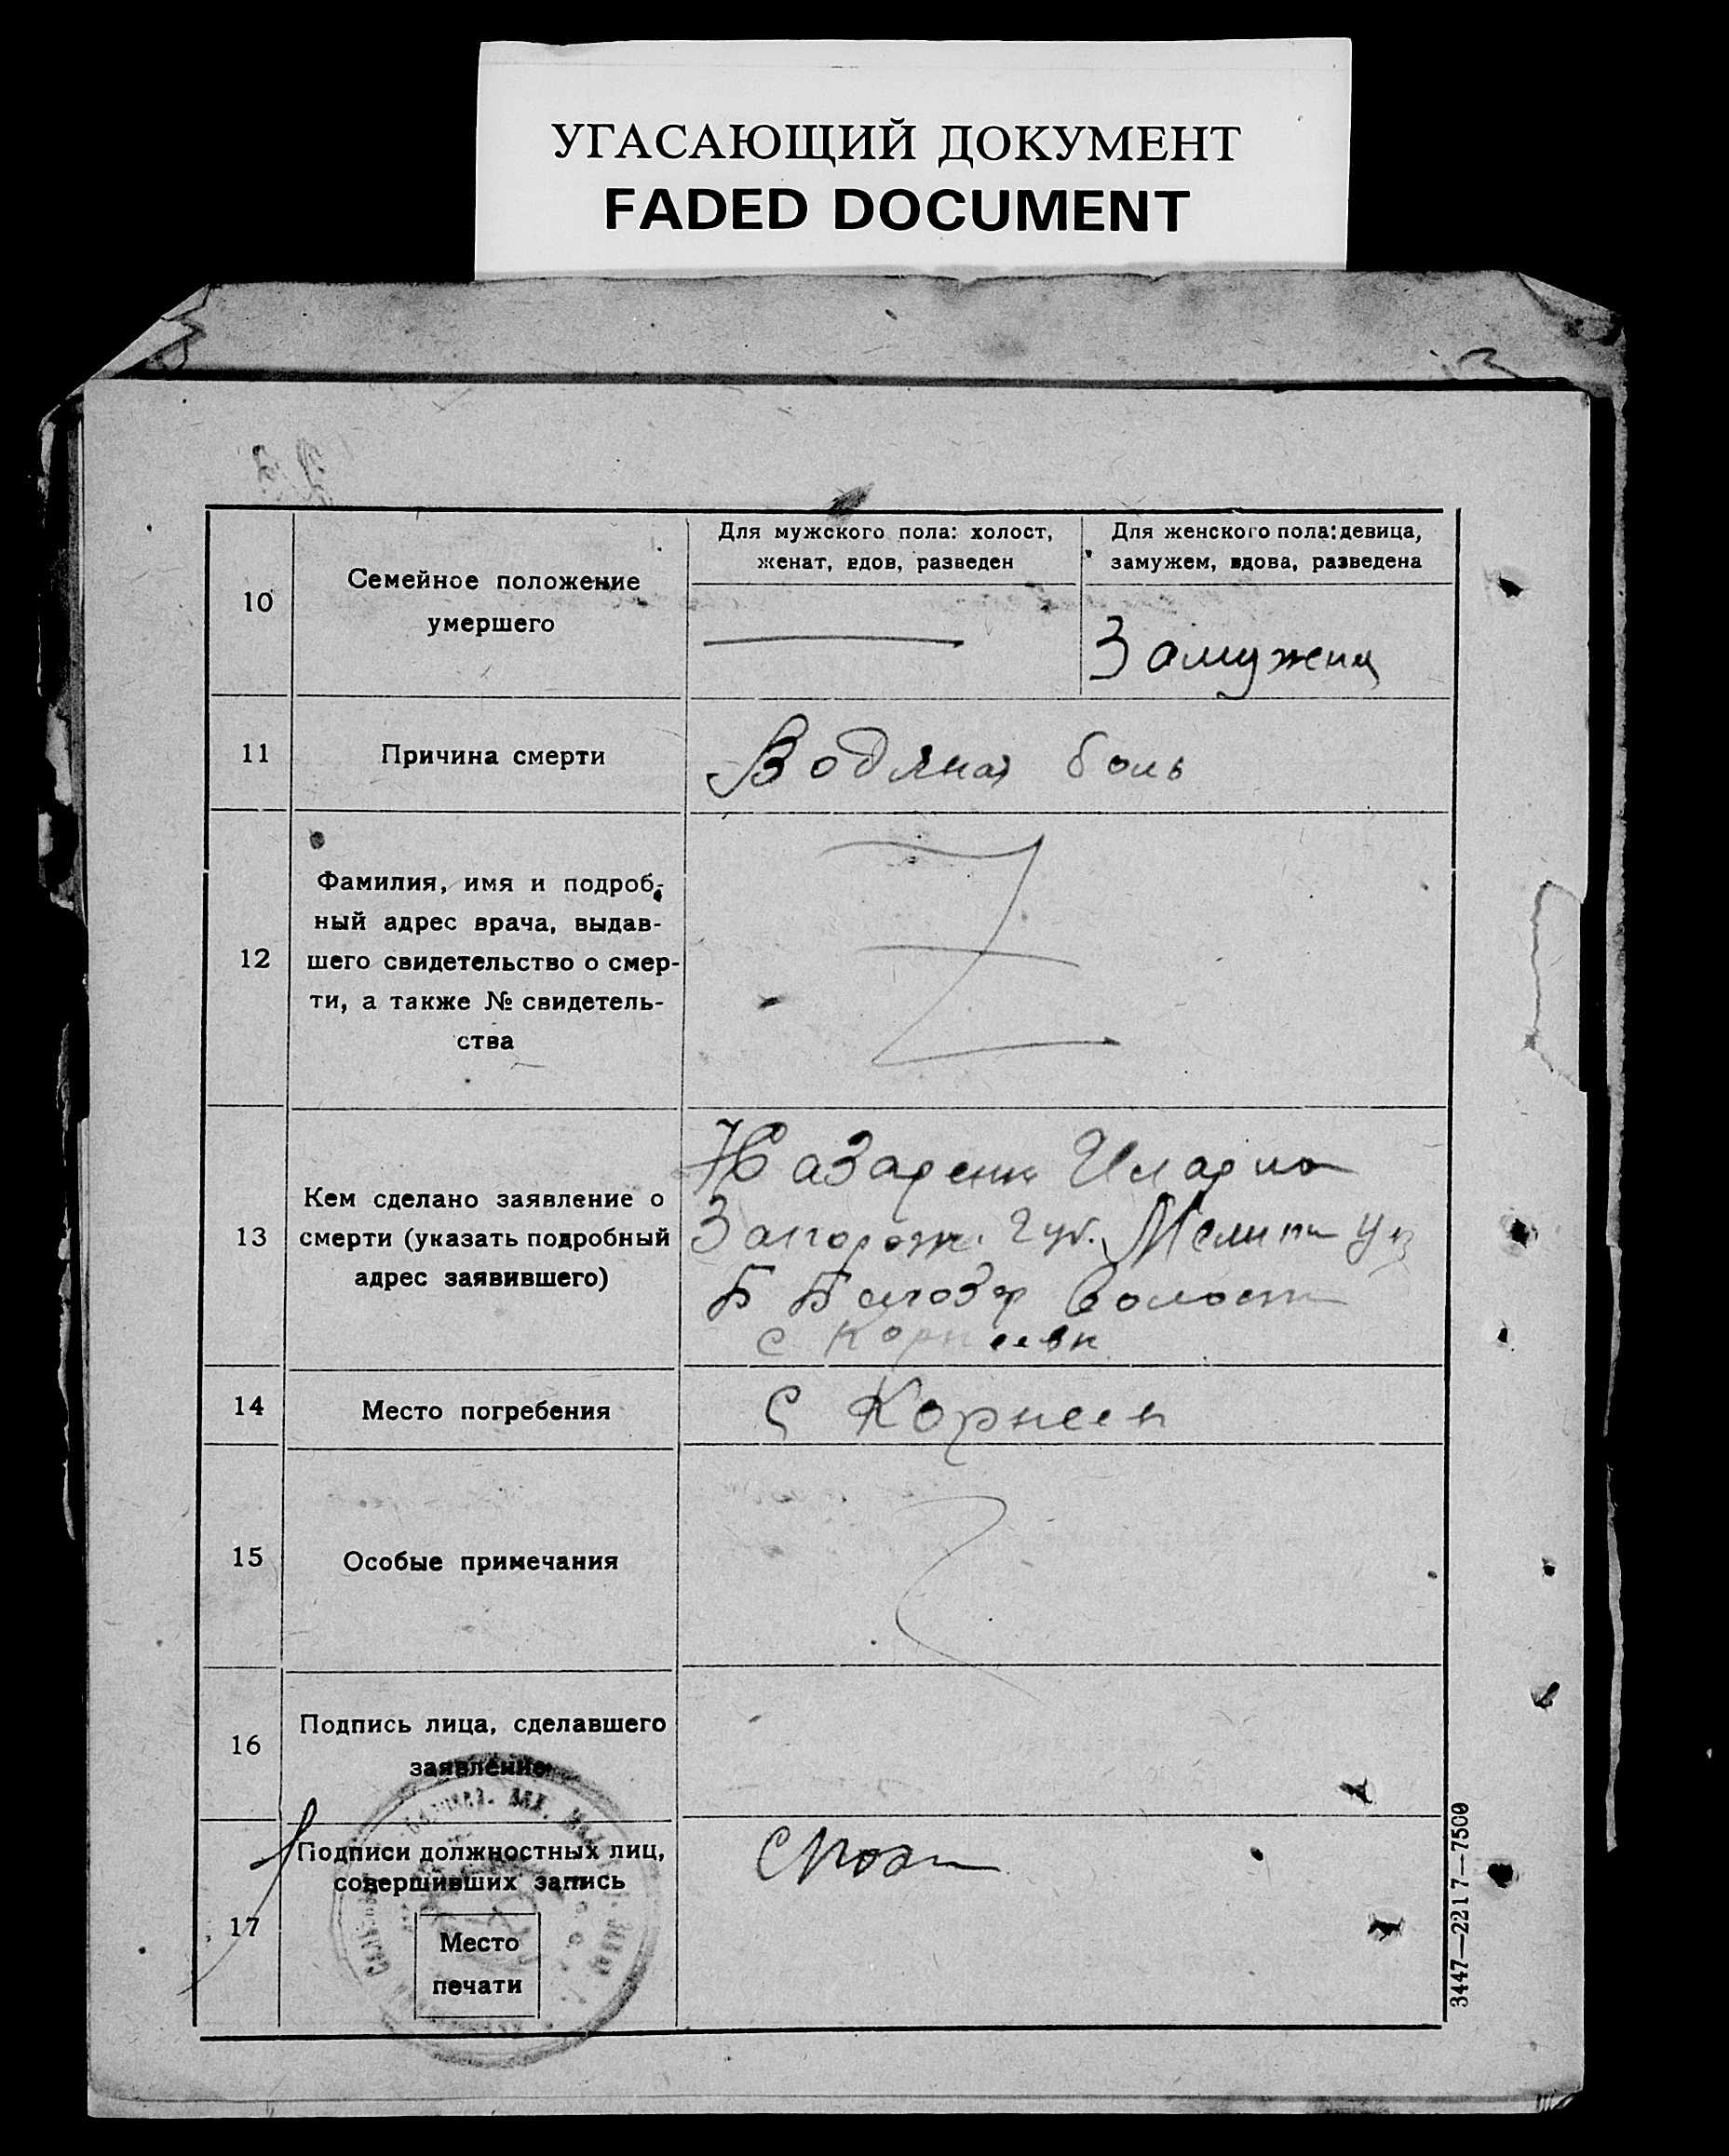 УГАСАЮЩИЙ ДОКУМЕНТ
FADED DOCUMENT
10
Семейное положение
умершего
Для мужского пола: холост,
женат, вдов, разведен
Для женского пола: девица,
замужем, вдова, разведена
Замужем
11
Причина смерти
Водяная боль
12
Фамилия, имя и подроб-
ный адрес врача, выдав-
шего свидетельство о смер-
ти, а также № свидетель-
ства
13
Кем сделано заявление о
смерти (указать подробный
адрес заявившего)
Назаренк Иларио
Запорож. Губ. Мелит Уз
Б Белозер Волост
с Корнеевк
14
Место погребения
С Корнеев
15
Особые примечания
16
Подпись лица, сделавшего
заявление
17
Подписи должностных лиц,
совершивших запись
Место
печати
3447—2217—7500